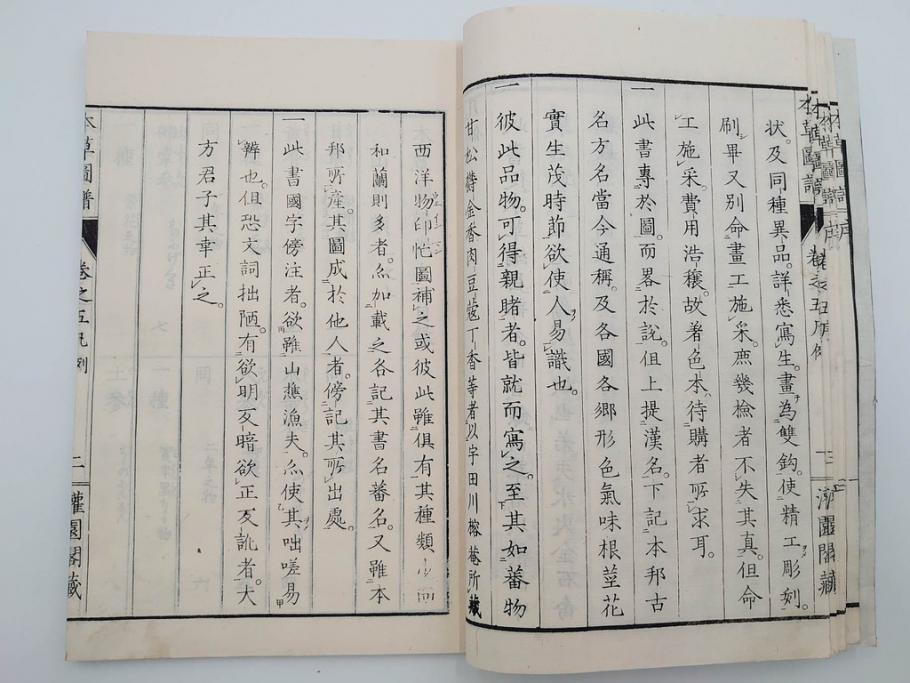 状。及同種異品。詳悉寫生。畫為雙鉤。使精工彫刻。
刷畢又別命畫工施采。庶幾檢者不失其真。但命
工施采。費用浩穣。故著色本。待購者所求耳。
一此書專於圖。而畧於說。但上提漢名。下記本邦古
名方名當今通稱。及各國各郷形色氣味根莖花
實生茂時節欲使人易識也。
一彼此品物。可得親睹者。皆就而寫之。至其如蕃物
甘松欝金香肉豆蔲丁香等者以宇田川榕菴所藏
西洋物印忙圖補之或彼此雖俱有其種類
和蘭則多者。亦加載之各記其書名蕃名。又雖本
邦所産。其圖成於他人者。傍記其所出處。
一此書國字傍注者。欲雖山樵漁夫。亦使其咄嗟易
辨也。但恐文詞拙陋。有欲明反暗欲正反訛者。大
方君子其幸正之。
本草圖譜 卷之五凡例 二 灌園閣藏